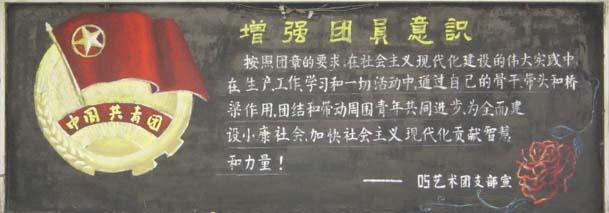 增强团员意识
中国共青团
按照团章的要求,在社会主义现代化建设的伟大实践中,
在生产、工作、学习和一切活动中,通过自己的骨干带头和桥
梁作用,团结和带动周围青年共同进步,为全面建
设小康社会,加快社会主义现代化贡献智慧
和力量!
——05艺术团支部宣